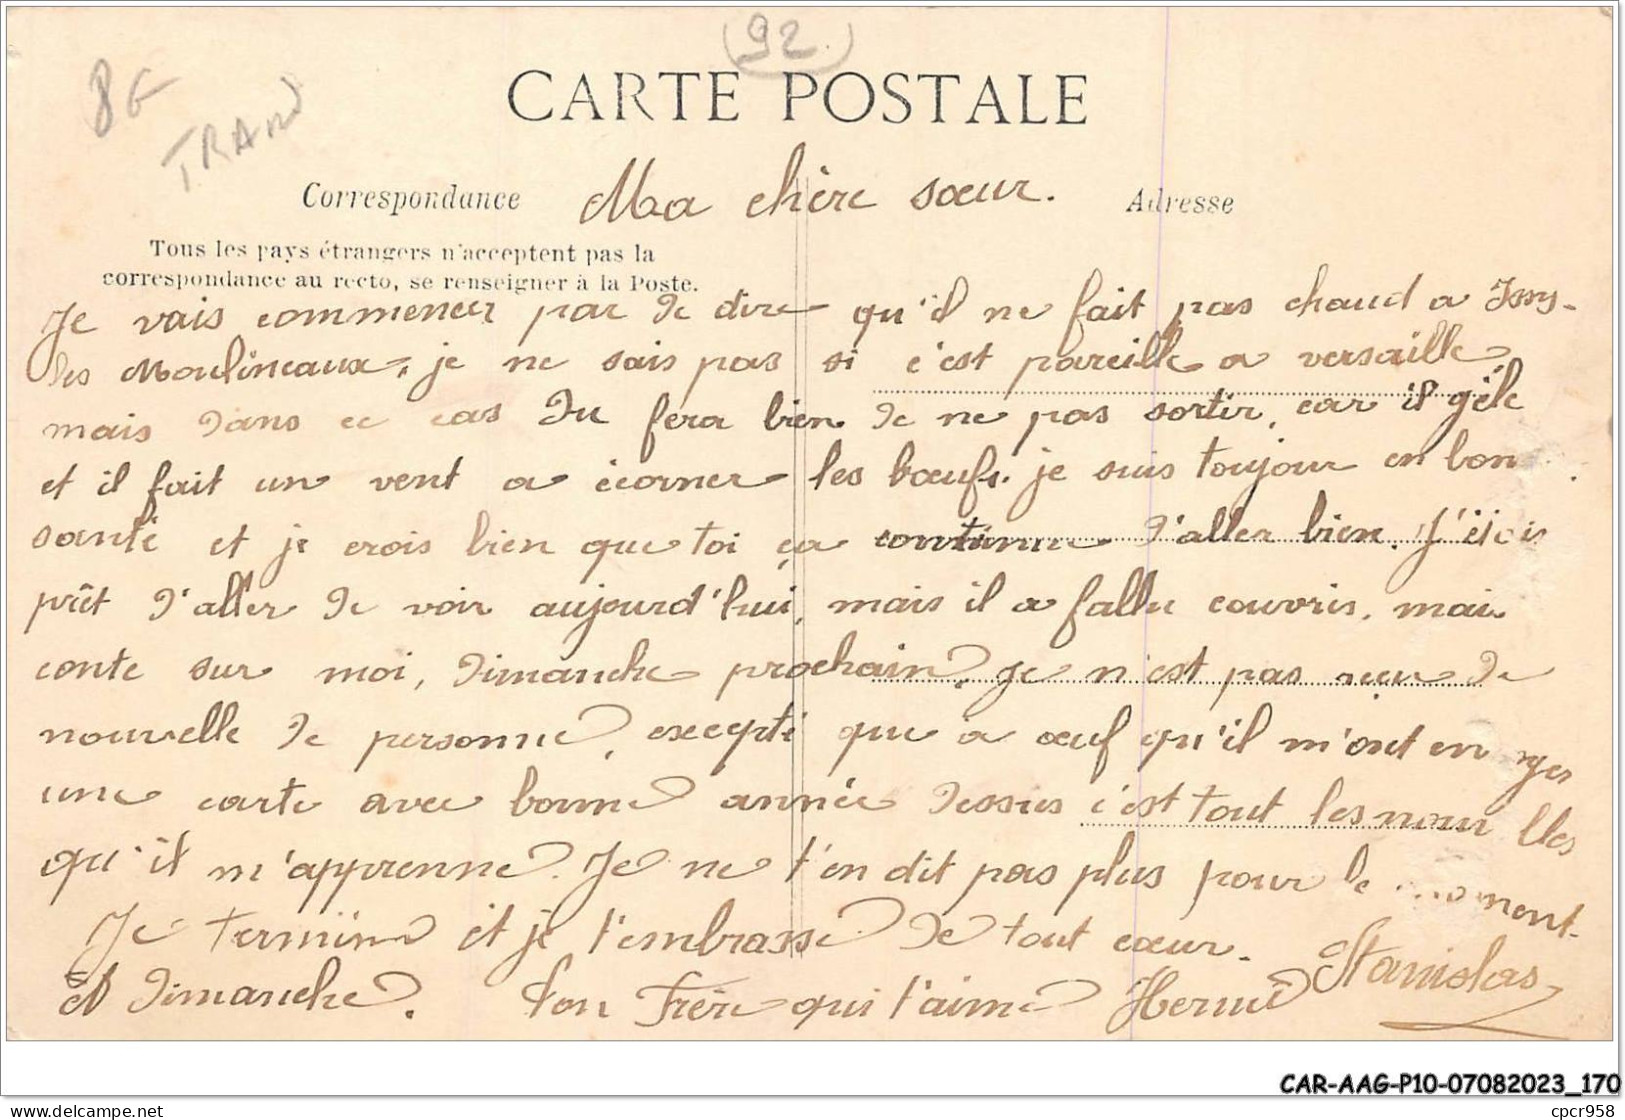 (92)
8G
TRAM
CARTE POSTALE
Correspondance
Ma chère sœur.
Adresse
Tous les pays étrangers n'acceptent pas la
correspondance au recto, se renseigner à la Poste.
Je vais commencer par te dire qu'il ne fait pas chaud a Issy-
les Moulineaux, je ne sais pas si c'est pareille a versaille,
mais dans ce cas tu fera bien de ne pas sortir, car il gèle
et il fait un vent a écorner les bœufs. je suis toujour en bon
santé et je crois bien que toi ça continue d'aller bien. J'étais
prêt d'aller te voir aujourd'hui, mais il a fallu couvrir, mai
conte sur moi, dimanche prochain. Je n'est pas reçu de
nouvelle de personne, excepté que a œuf qu'il m'ont en yer
une carte avec bonne année dessus c'est tout les nou lles
qu'il m'apprenne. Je ne t'en dit pas plus pour le moment.
Je termine et je t'embrasse de tout cœur.
et Dimanche. Ton Frère qui t'aime Stanislas
CAR-AAG-P10-07082023_170
delcampe.net
cpcr958